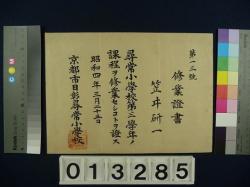 第一三號
修業證書
笠井研一
尋常小學校第三學年ノ
課程ヲ修業セシコトヲ證ス
昭和四年三月二十五日
京都市日彰尋常小學校
013285